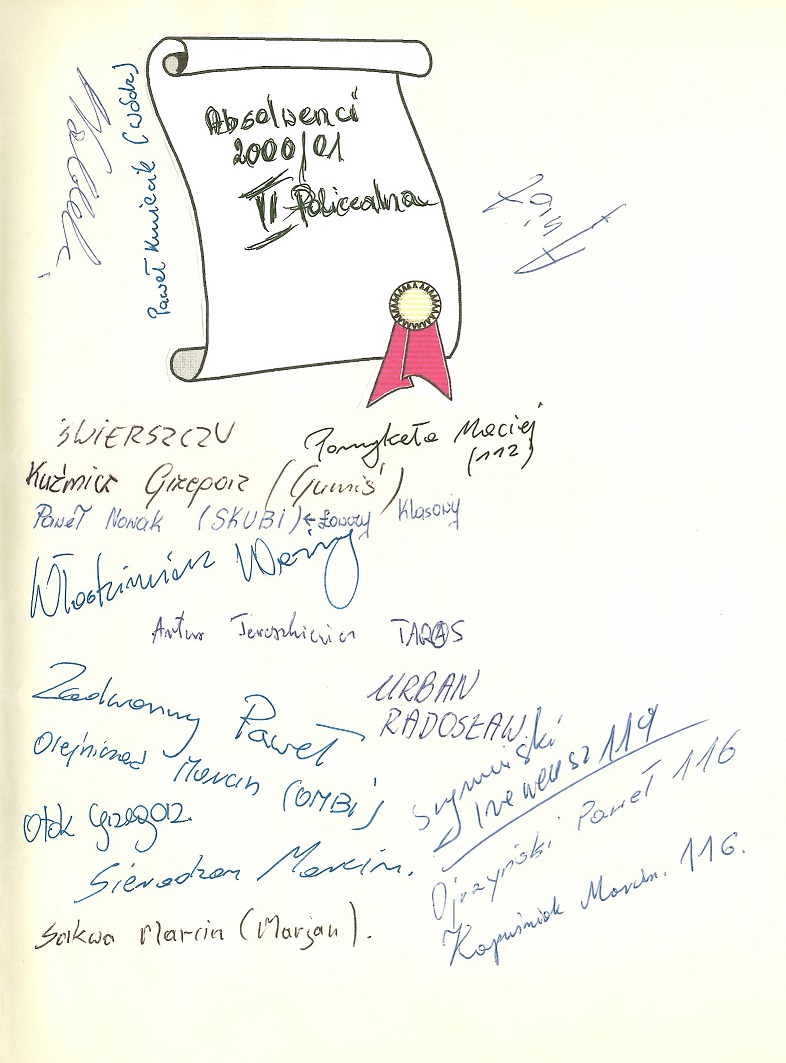 Absolwenci
2000/01
VI Policealna
Paweł Kmieciak (Wódz)
ŚWIERSZCZU
Pomykała Maciej
(112)
Kuźmicz Grzegorz (Gumiś)
Paweł Nowak (SKUBI) ← Łowczy Klasowy
Włodzimierz Ważny
Artur Jaroszkiewicz TARAS
Zadworny Paweł
URBAN
RADOSŁAW
Olejniczad Marcin (OMBi)
Ireneusz 119
Otok Grzegorz
Ojrzyński Paweł 116
Sieradzan Marcin.
Kapuśniak Marcin. 116.
Sakwa Marcin (Marjan).